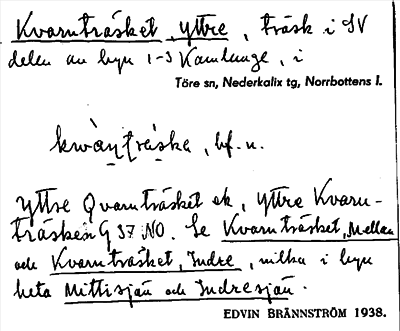 Kvarnträsket, Yttre, träsk i SV
delen av byn 1-3 Kamlunge, i
Töre sn, Nederkalix tg, Norrbottens l.
kwàn̩trä́ske, bf. n.
Yttre Qvarnträsket ek, Yttre Kvarn-
träsken G 37 NO. Se Kvarnträsket, Mellan
och Kvarnträsket, Indre, vilka i byn
heta Mittisjän och Indresjän.
EDVIN BRÄNNSTRÖM 1938.